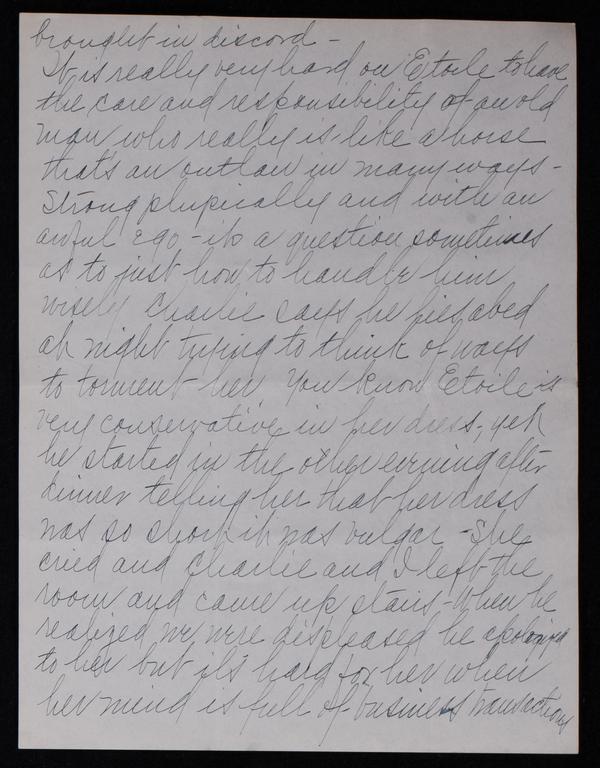 brought in discord -
It is really very hard on Etoile to have
the care and responsibility of an old
man who really is like a horse
that's an outlaw in many ways -
Strong physically and with an
awful ego - its a question sometimes
as to just how to handle him
wisely Charlie says he lies abed
at night trying to think of ways
to torment her. You know Etoile is
very conservative in her dress, yet
he started in the other evening after
dinner telling her that her dress
was so short it was vulgar - She
cried and Charlie and I left the
room and came up stairs - When he
realized we were displeased he apologized
to her but it's hard for her when
her mind is full of business transactions